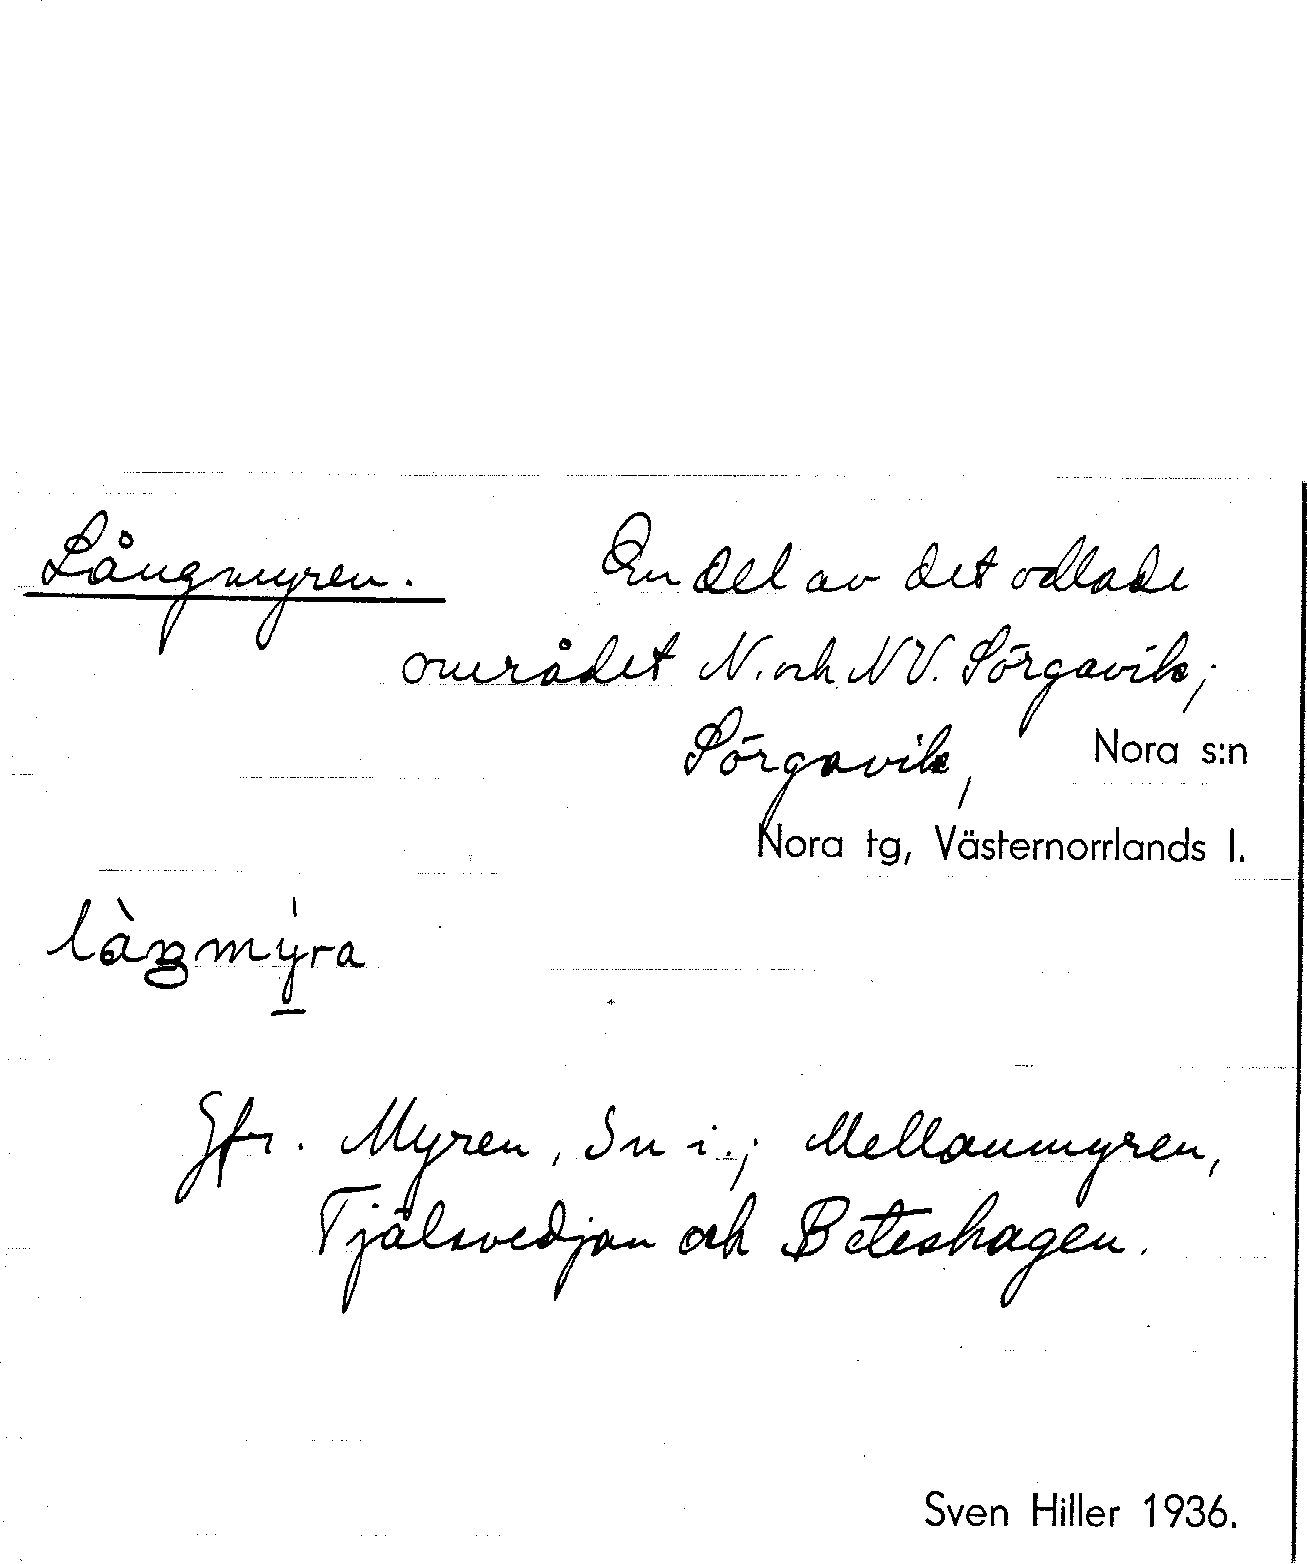 Långmyren. En del av det odlade
området N. och NV. Sörgavik;
Sörgavik, Nora s:n
Nora tg, Västernorrlands l.
Jfr. Myren, Sn i.; Mellanmyren,
Tjälsvedjan och Beteshagen.
Sven Hiller 1936.